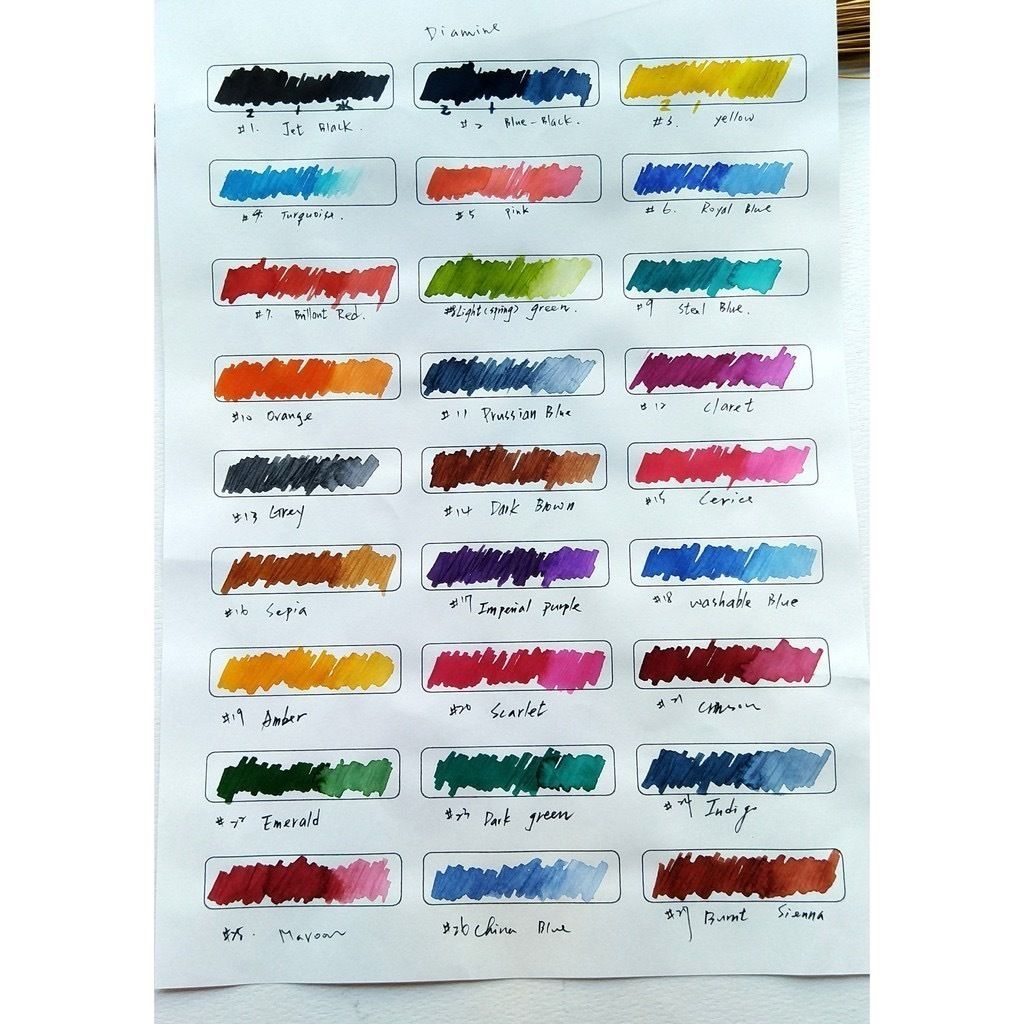 Diamine
2 1 2K
2 1
2 1
#1. Jet Black.
#2 Blue-Black.
#3. yellow
#4. Turquoise.
#5 Pink
#6. Royal Blue
#7. Brillant Red.
#8 Light (spring) green.
#9 Steal Blue.
#10 Orange
#11 Prussian Blue
#12 Claret
#13 Grey
#14 Dark Brown
#15 Cerice
#16 Sepia
#17 Imperial purple
#18 washable Blue
#19 Amber
#20 Scarlet
#21 Crimson
#22 Emerald
#23 Dark green
#24 Indigo
#25. Maroon
#26 China Blue
#27 Burnt Sienna